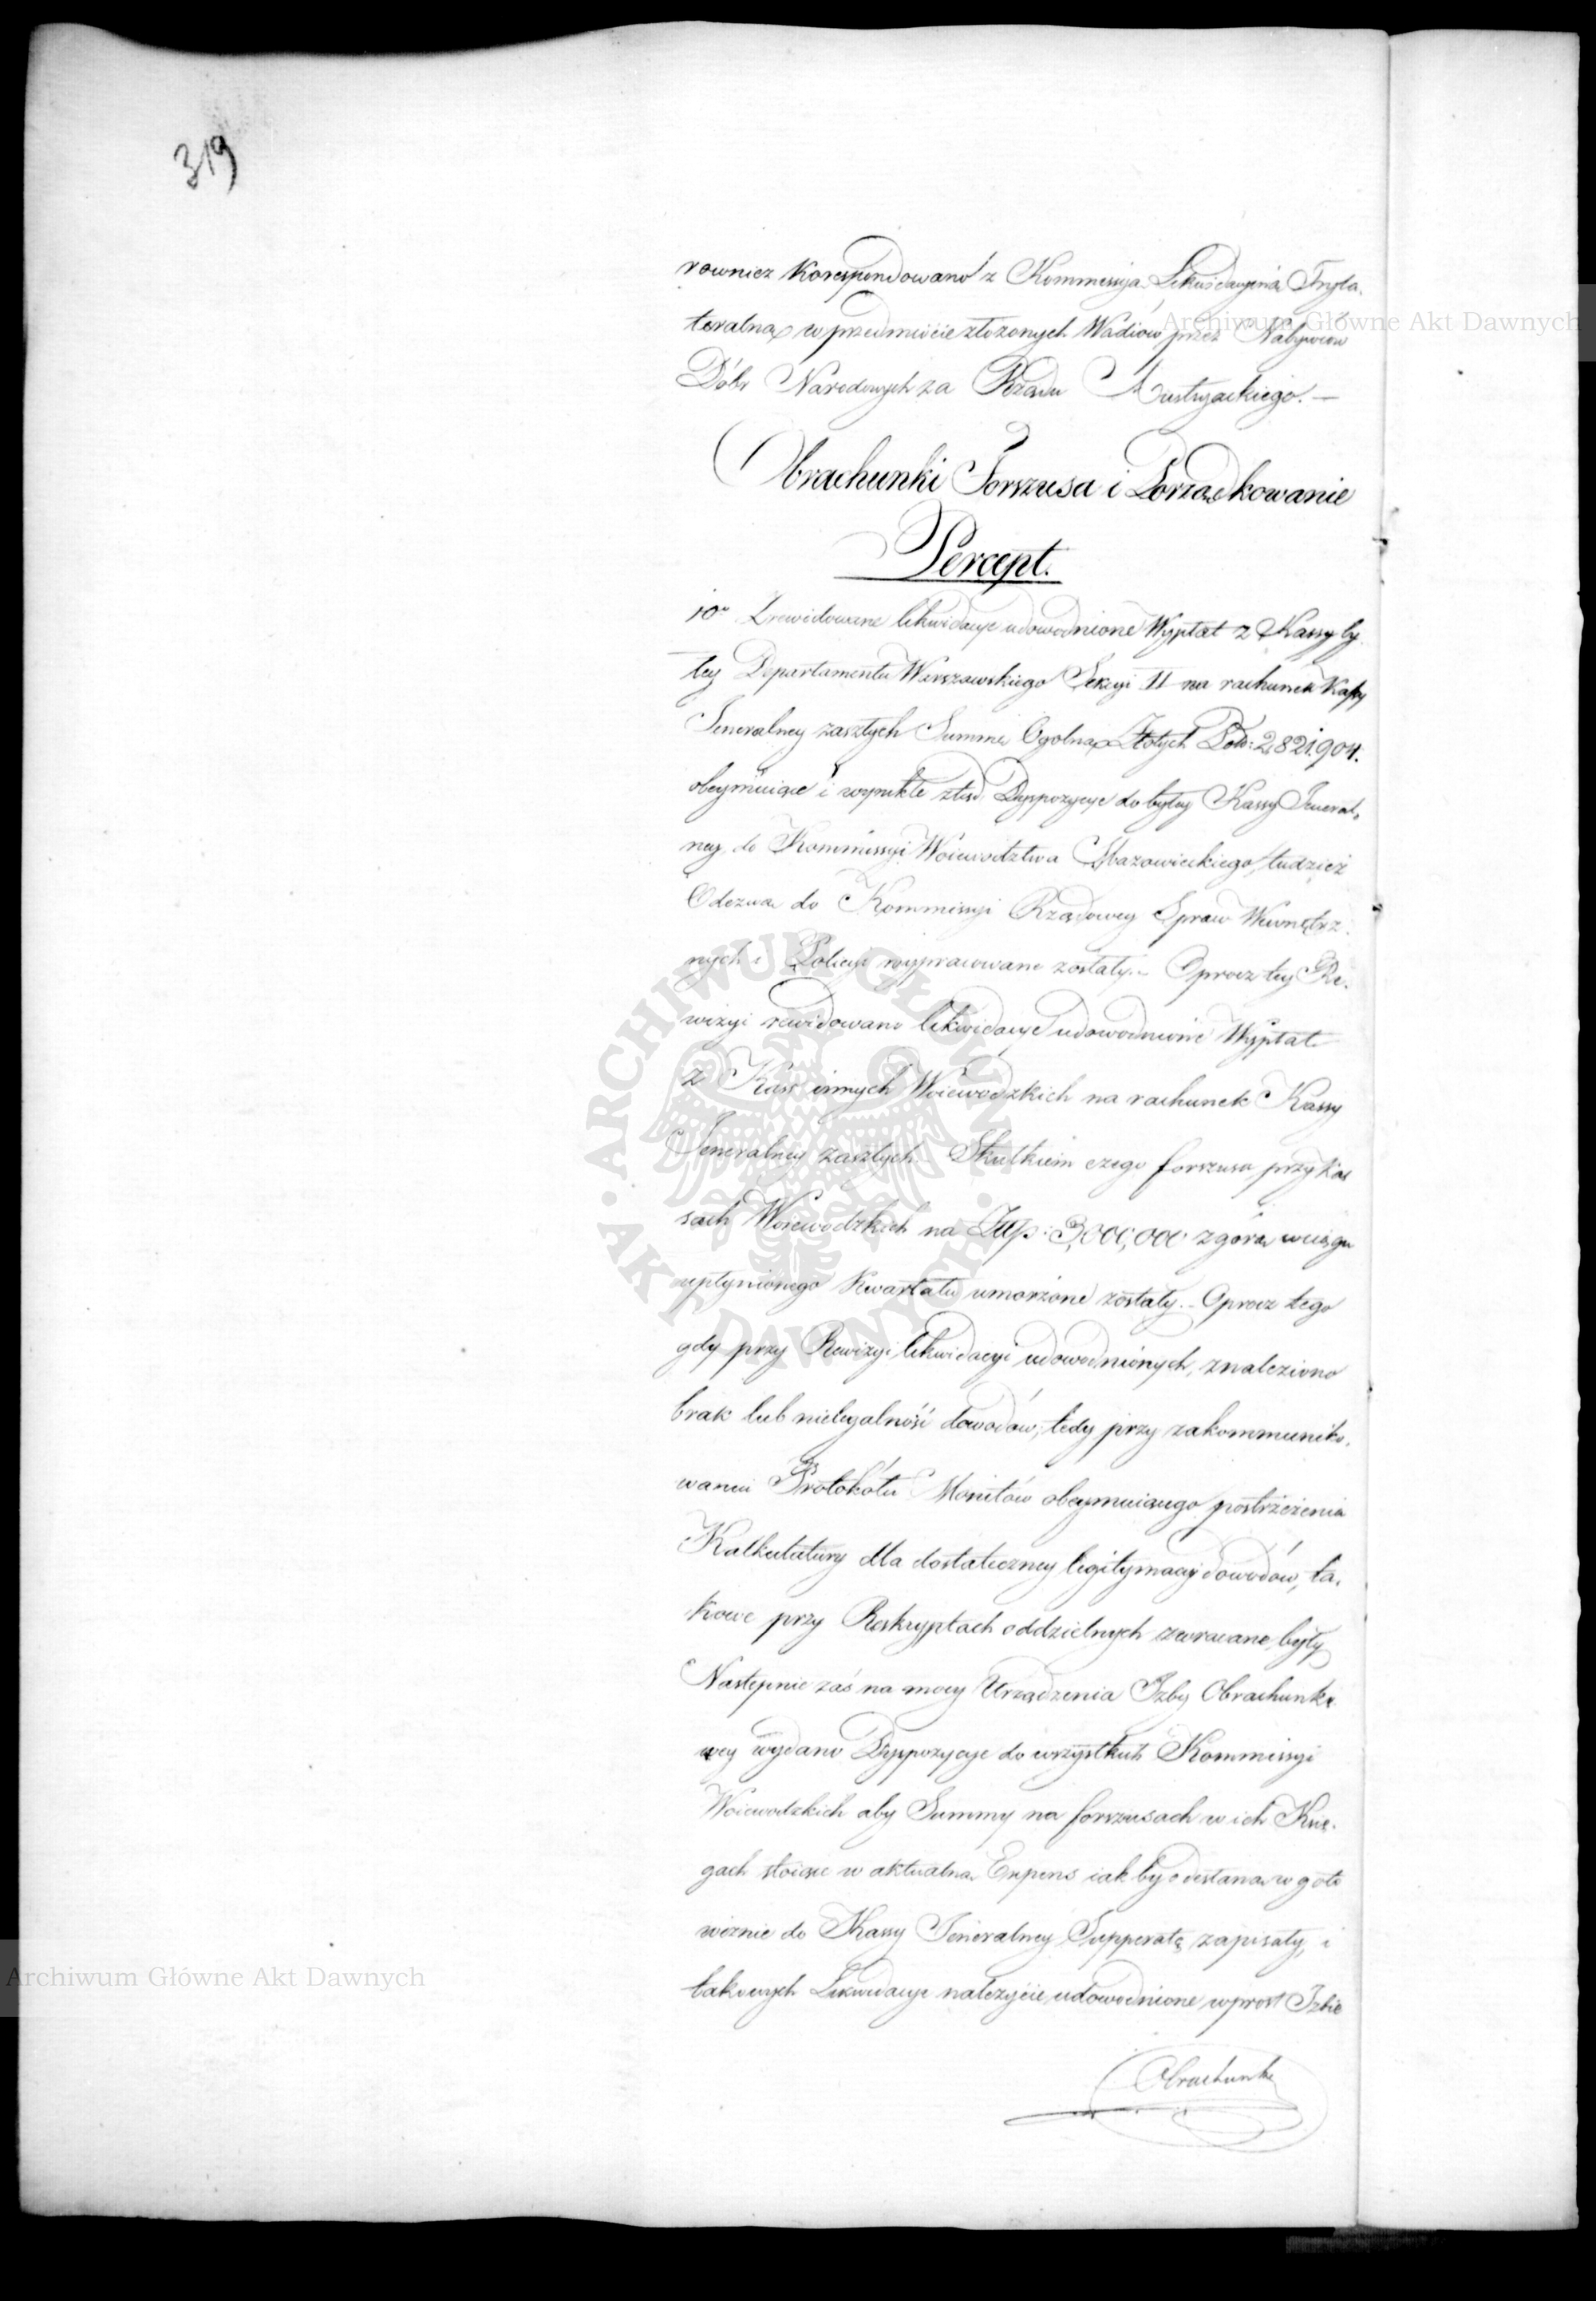 319
rownież korespondowano z Kommissyą Likwidacyiną Tryla.
teralną w przedmiocie złożonych Wadiów przez Nabywców
Dóbr Narodowych za Rządu Austryackiego. —
Obrachunki Forszusa i Porządkowanie
Percept.
10° Zrewidowane likwidacye udowodnione Wypłat z Kassy by.
łey Departamentu Warszawskiego Sekcyi II na rachunek Kassy
Jeneralney zaszłych Summę Ogolną Złotych Pols: 2,821.904.
obeymuiące i wynikłe ztąd Dyspozycye do byłey Kassy Jeneral,
ney, do Kommissyi Woiewodztwa Mazowieckiego, tudzież
Odezwa do Kommissyi Rządowey Spraw Wewnętrz.
nych i Policyi wypracowane zostały. – Oprocz tey Re.
wizyi rewidowano likwidacye udowodnione Wypłat
z Kass innych Woiewodzkich na rachunek Kassy
Jeneralney zaszłych. Skutkiem czego forszusa przy Kas
sach Woiewodzkich na Złp: 3,000,000 zgórą w ciągu
upłynionego Kwartału umorzone zostały. – Oprocz tego
gdy przy Rewizyi likwidacyi udowodnionych, znaleziono
brak lub nielegalność dowodów, tedy przy zakommuniko,
waniu Protokółu Monitów obeymuiącego postrzeżenia
Kalkulatury dla dostateczney legitymacyi dowodów, ta,
kowe przy Reskryptach oddzielnych zwracane były
Następnie zaś na mocy Urządzenia Izby Obrachunko
wey wydano Dyspozycye do wszystkich Kommissyi
Woiewodzkich aby Summy na forszusach w ich Księ.
gach stoiące w aktualną Expens iak by odesłaną w goto
wiznie do Kassy Jeneralney Supperatę zapisały, i
takowych Likwidacye należycie udowodnione wprost Izbie
Obrachunko
Archiwum Główne Akt Dawnych
Archiwum Główne Akt Dawnych
ARCHIWUM GŁÓWNE AKT DAWNYCH